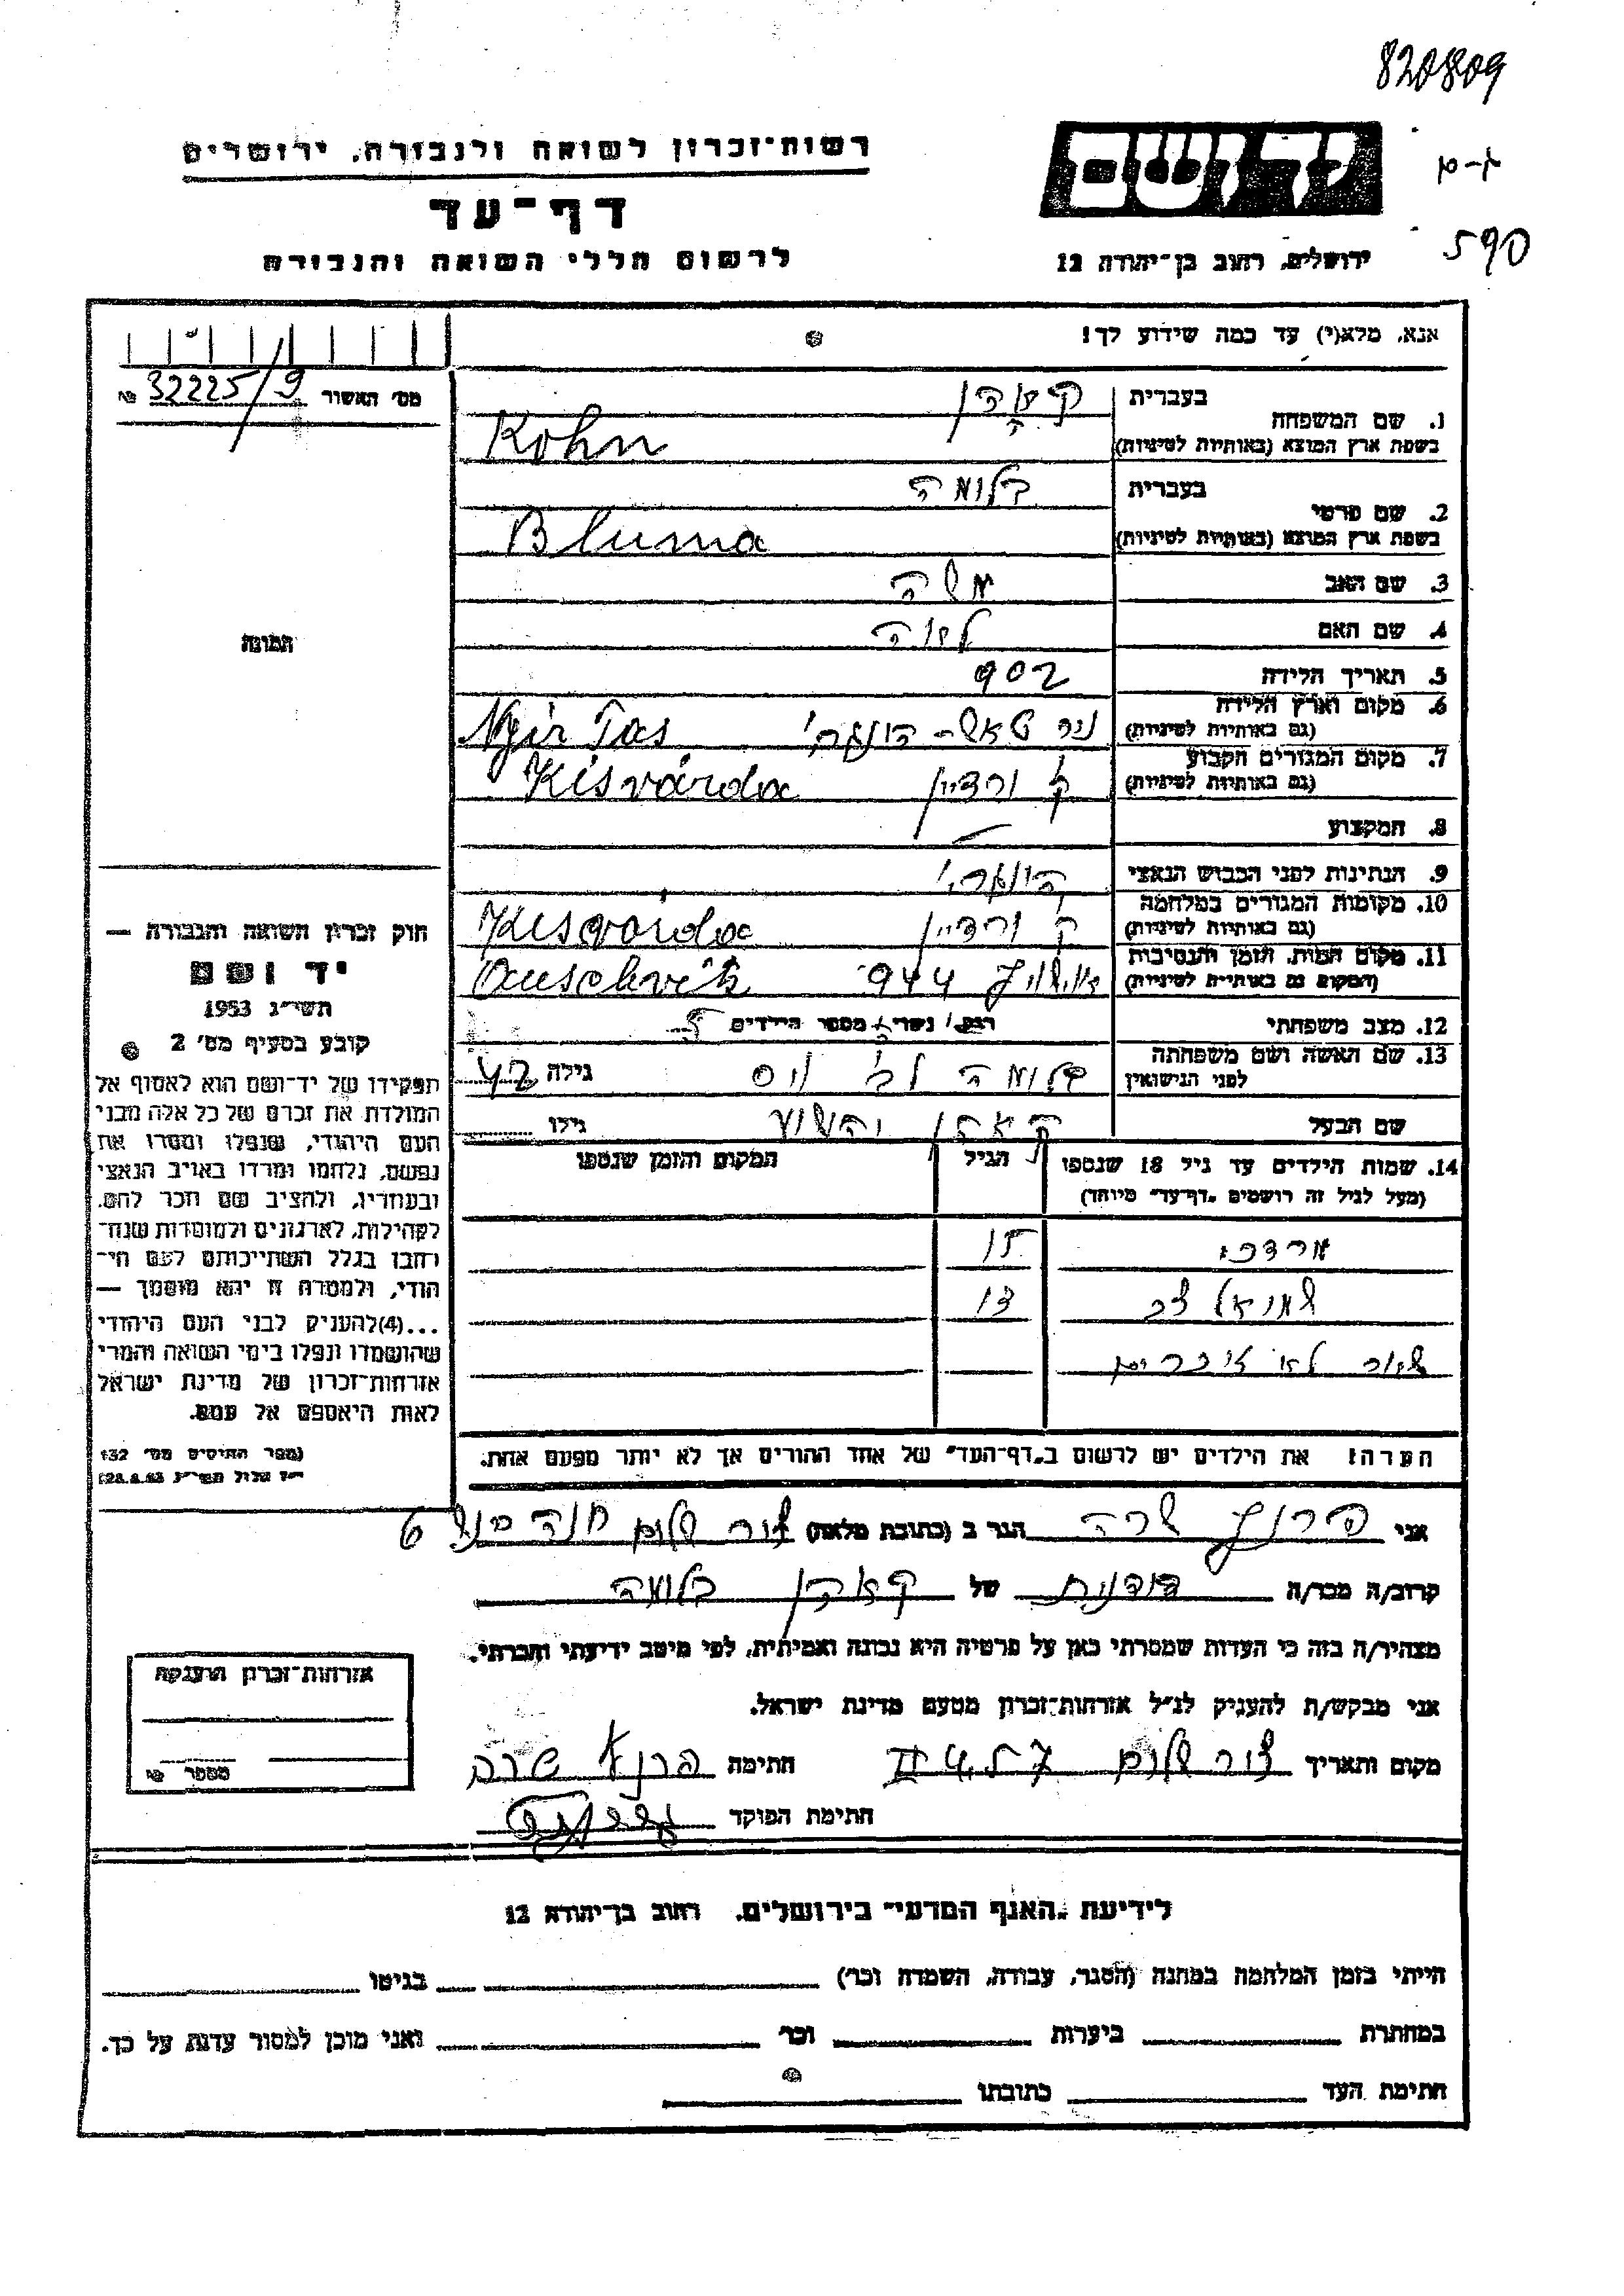 820809
רשות־זכרון לשואה ולגבורה, ירושלים
יד ושם
דף־עד
590
לרשום חללי השואה והגבורה
ירושלים, רחוב בן־יהודה 12
אנא, מלא(י) עד כמה שידוע לך!
מס׳ האשור 32225/9 №
בעברית
1. שם המשפחה
בשפת ארץ המוצא (באותיות לטיניות) Kohn
בעברית בלומה
2. שם פרטי
בשפת ארץ המוצא (באותיות לטיניות) Bluma
3. שם האב משה
4. שם האם
התמונה
5. תאריך הלידה 902
6. מקום וארץ הלידה
(גם באותיות לטיניות) Nyir Tas
7. מקום המגורים הקבוע
(גם באותיות לטיניות) Kisvárda
8. המקצוע
9. הנתינות לפני הכבוש הנאצי
10. מקומות המגורים במלחמה
(גם באותיות לטיניות) Kisvárda
11. מקום המות, הזמן והנסיבות
(המקום גם באותיות לטיניות) 944 Auschvitz
12. מצב משפחתי רוק/ נשוי/ מספר הילדים 5
13. שם האשה ושם משפחתה
לפני הנישואין בלומה גילה 42
שם הבעל קאהן יהושע גילו
14. שמות הילדים עד גיל 18 שנספו הגיל המקום והזמן שנספו
(מעל לגיל זה רושמים „דף־עד״ מיוחד)
מרדכי 15
שמואל צבי 13
לא זוכרים
חוק זכרון השואה והגבורה —
יד ושם
תשי״ג 1953
קובע בסעיף מס׳ 2
תפקידו של יד־ושם הוא לאסוף אל
המולדת את זכרם של כל אלה מבני
העם היהודי, שנפלו ומסרו את
נפשם, נלחמו ומרדו באויב הנאצי
ובעוזריו, ולהציב שם וזכר להם,
לקהילות, לארגונים ולמוסדות שנח־
רבו בגלל השתייכותם לעם הי־
הודי, ולמטרה זו יהא מוסמך —
...(4) להעניק לבני העם היהודי
שהושמדו ונפלו בימי השואה והמרי
אזרחות־זכרון של מדינת ישראל
לאות היאספם אל עמם.
(ספר החוקים מס׳ 132
28.8.53)
הערה: את הילדים יש לרשום ב„דף־העד״ של אחד ההורים אך לא יותר מפעם אחת.
אני שרה הגר ב (כתובת מלאה) צור שלום 6
קרוב/ה מכר/ה של קאהן בלומה
מצהיר/ה בזה כי העדות שמסרתי כאן על פרטיה היא נכונה ואמיתית, לפי מיטב ידיעתי והכרתי.
אני מבקש/ת להעניק לנ״ל אזרחות־זכרון מטעם מדינת ישראל.
מקום ותאריך צור שלום חתימה שרה
חתימת הפוקד
אזרחות־זכרון הוענקה
מספר №
לידיעת „האגף המדעי״ בירושלים, רחוב בן־יהודה 12
הייתי בזמן המלחמה במחנה (הסגר, עבודה, השמדה וכר׳) בגיטו
במחתרת ביערות וכר׳ ואני מוכן למסור עדות על כך.
חתימת העד כתובתו